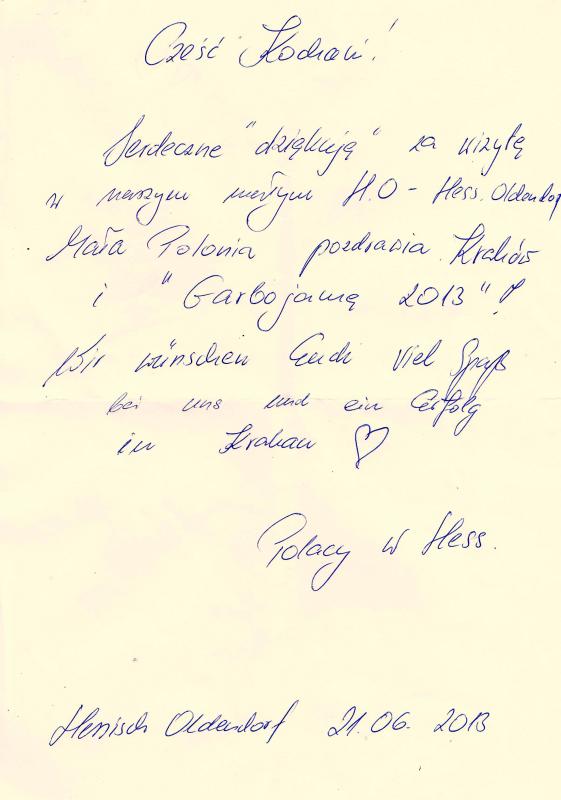 Cześć Kochani!
Serdeczne "dziękuję" za wizytę
w naszym małym H.O - Hess. Oldendorf
Mała Polonia pozdrawia Kraków
i "Garbojamę 2013"!
Wir wünschen Euch viel Spaß
bei uns und ein Erfolg
in Krakau ♡
Polacy w Hess.
Hessisch Oldendorf 21.06. 2013